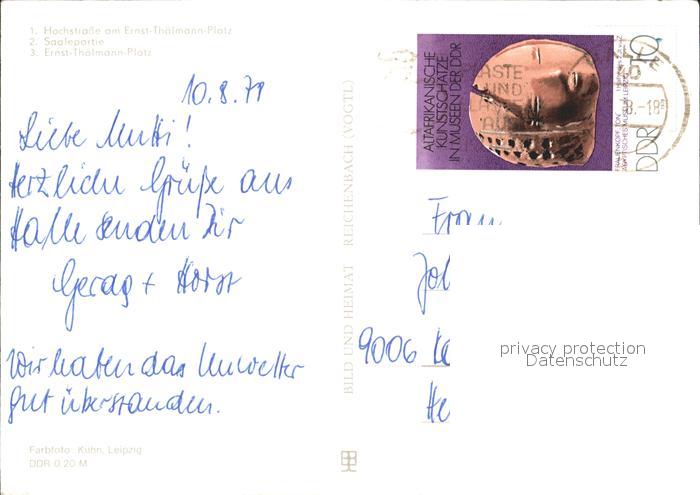 1. Hochstraße am Ernst-Thälmann-Platz
2. Saalepartie
3. Ernst-Thälmann-Platz
10.8.79
Liebe Mutti!
Herzliche Grüße aus
Halle senden Dir
+ Horst
Wir haben das Unwetter
gut überstanden.
Farbfoto: Kühn, Leipzig
DDR 0.20 M
BILD UND HEIMAT REICHENBACH (VOGTL)
ALTAFRIKANISCHE
KUNSTSCHÄTZE
IN MUSEEN DER DDR
DDR
8.-18
9006
He
privacy protection
Datenschutz